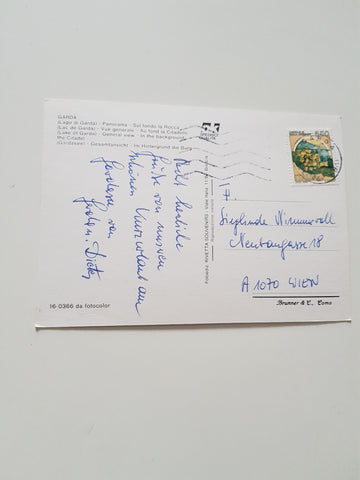 GARDA
(Lago di Garda) - Panorama - Sul fondo la Rocca
(Lac de Garda) - Vue generale - Au fond la Citadelle
(Lake of Garda) - General view - In the background
the Citadel
(Gardasee) - Gesamtansicht - Im Hintergrund die Burg
Recht herzliche
Grüße von unserem
schönen Kurzurlaub am
Gardasee von
Dieter
16-0366 da fotocolor
550
Sieglinde
Neubaugasse 18
A 1070 WIEN
Brunner & C., Como